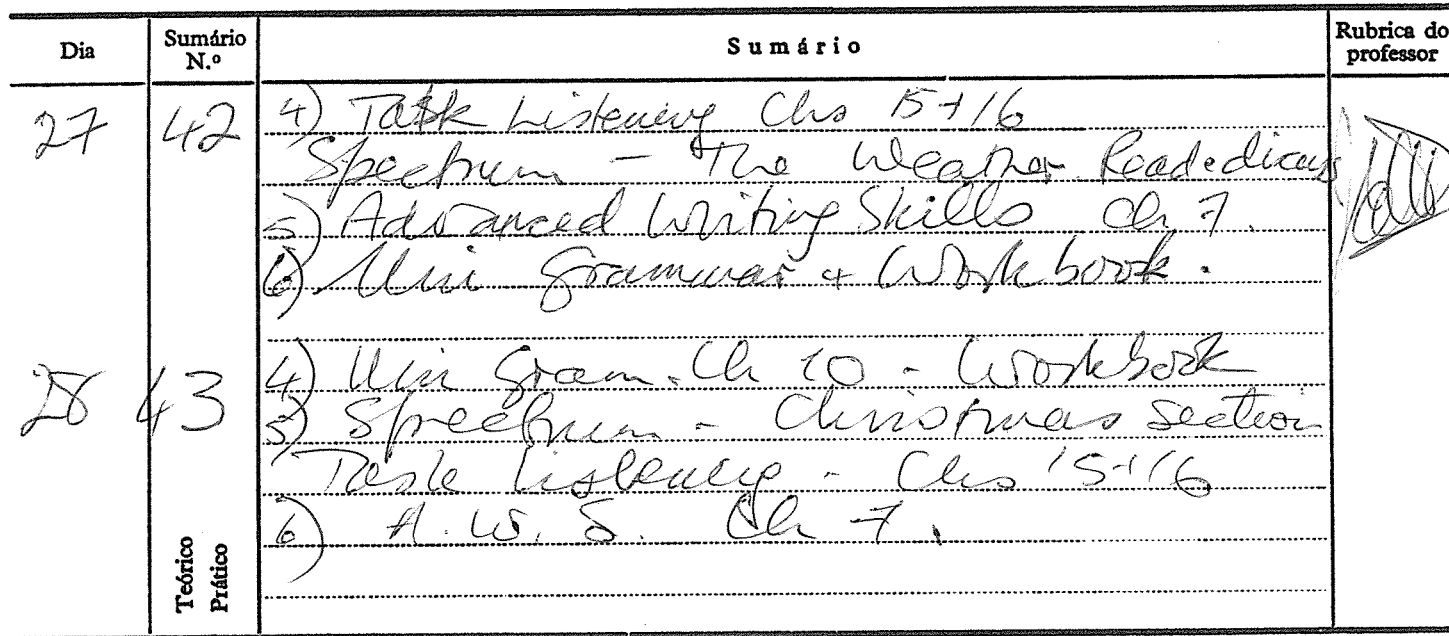 Dia Sumário N.º Sumário Rubrica do professor
27 42 4) Task Listening Chs 15+16
Spectrum - The Weather Read+
5) Advanced Writing Skills Ch 7.
6) Uni Grammar + Workbook.
28 43 4) Uni Gram. Ch 10 - Workbook
5) Spectrum - Christmas section
Task Listening - Chs 15+16
6) A. W. S. Ch 7.
Teórico
Prático